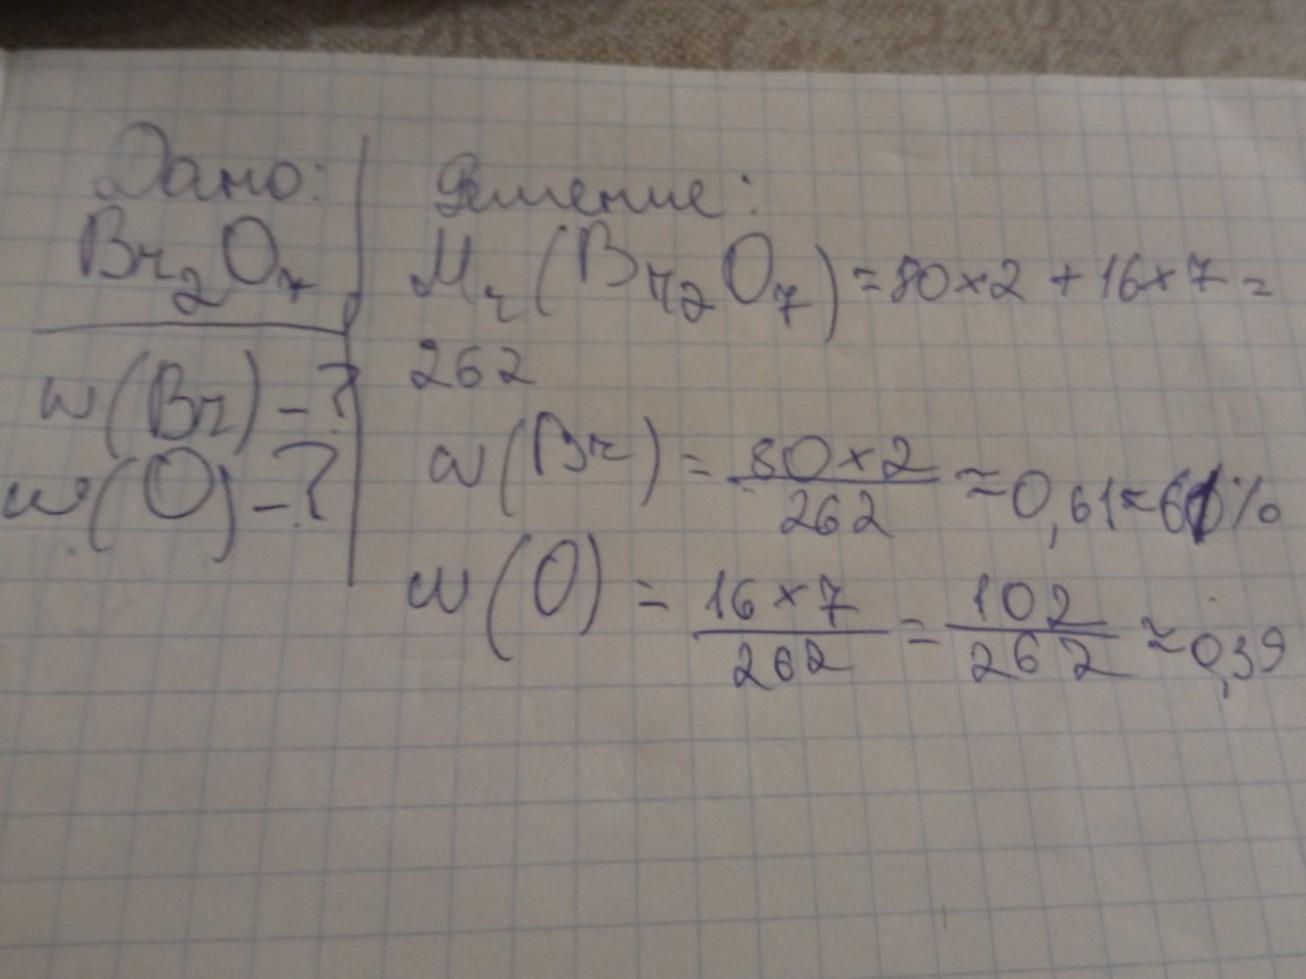 Дано:
Br₂O₇
w(Br) - ?
w(O) - ?
Решение:
Mr(Br₂O₇) = 80×2 + 16×7 =
262
w(Br) = 80×2/262 ≈ 0,61 ≈ 61%
w(O) = 16×7/262 = 102/262 ≈ 0,39